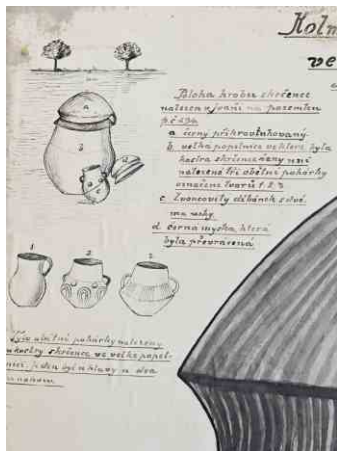 Kolm
ve
Poloha hrobu skrčence
nalezen v jraží na pozemku
p. č.
a černý příkrov tuhovaný
b. velká popelnice ve které byla
kostra skrčence a v ní
nalezené tři obětní pohárky
označené tvarů 1. 2. 3
c. Zvoncovitý džbánek s dvě
ma uchy
d. černa myska, která
byla převracená
a
b
c
d
1
2
3
Tyto obětní pohárky nalezeny
u kostry skrčence ve velké popel-
nici. jeden byl u hlavy a dva
u nohou.